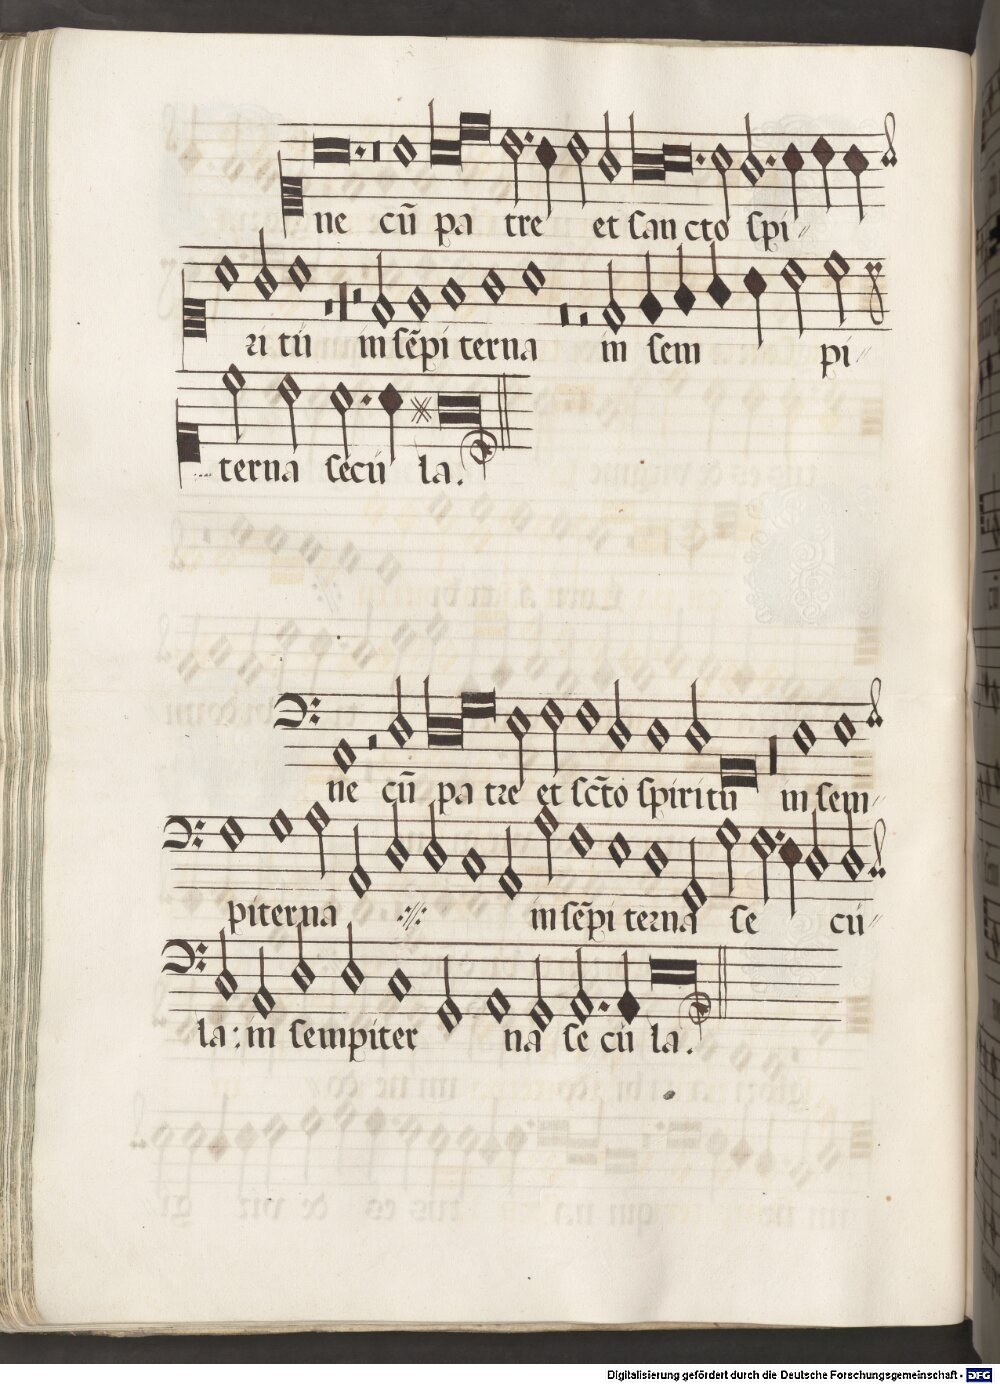 ne cū̃ pa tre et san cto spi〃
ri tū in sēpi terna in sem pi〃
terna secū la.
ne cū̃ pa tre et sc̄to spiritū in sem〃
piterna ://: in sēpi terna se cū〃
la: in sempiter na se cū la.
Digitalisierung gefördert durch die Deutsche Forschungsgemeinschaft - DFG